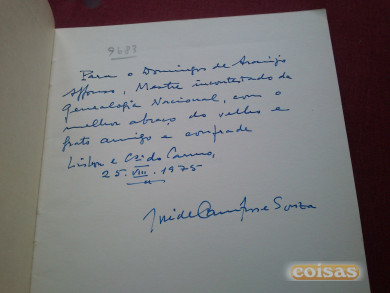 9683
Para o Domingos de Araujo
Affonso, Mestre incontestado da
Genealogia Nacional, com o
melhor abraço do velho e
grato amigo e confrade
Lisboa e Czª do Carmo,
25. VIII. 1975
José de Campos e Sousa
coisas